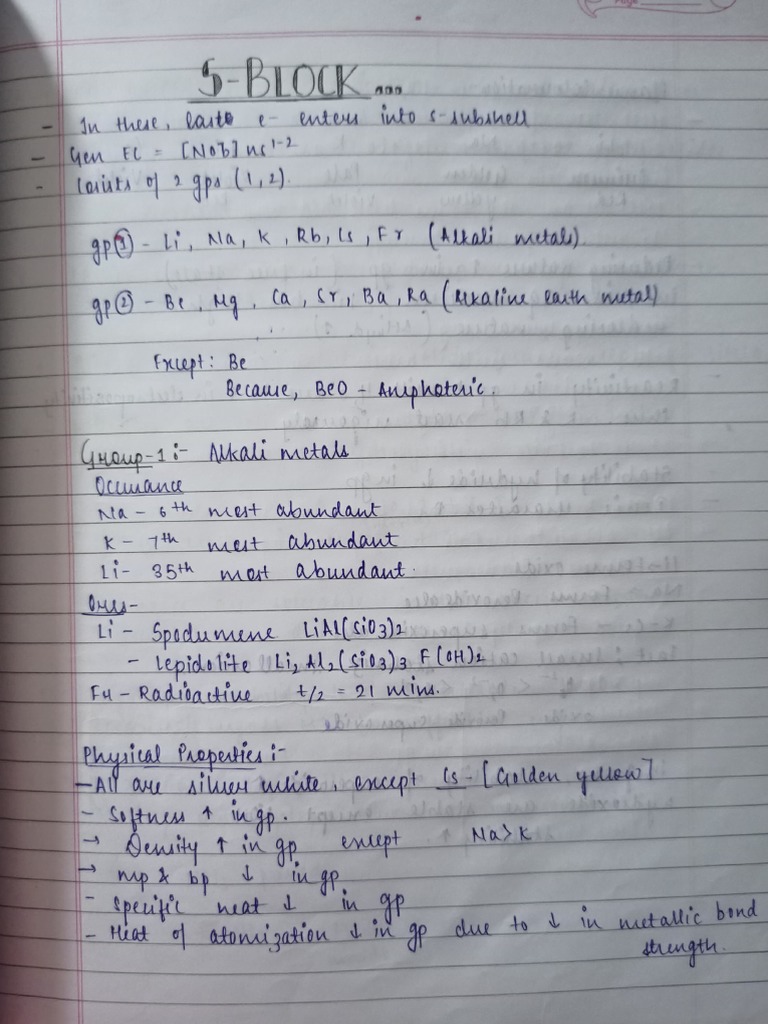 Page
S-BLOCK...
- In these, last e- enters into s-subshell
- Gen EC = [Nob] ns¹⁻²
- Cosists of 2 gps (1,2).
gp① - Li, Na, K, Rb, Cs, Fr (Alkali metals)
gp② - Be, Mg, Ca, Sr, Ba, Ra (Alkaline earth metal)
Except: Be
Because, BeO - Amphoteric.
Group-1 :- Alkali metals
Occurance
Na - 6th most abundant
K - 7th most abundant
Li - 35th most abundant.
Ores-
Li - Spodumene LiAl(SiO3)2
- Lepidolite Li2 Al2 (SiO3)3 F(OH)2
Fr - Radioactive t/2 = 21 mins.
Physical Properties :-
- All are silver white, except Cs - [Golden yellow]
- Softness ↑ in gp.
→ Density ↑ in gp except Na>K
→ mp & bp ↓ in gp
- Specific heat ↓ in gp
- Heat of atomization ↓ in gp due to ↓ in metallic bond
strength.